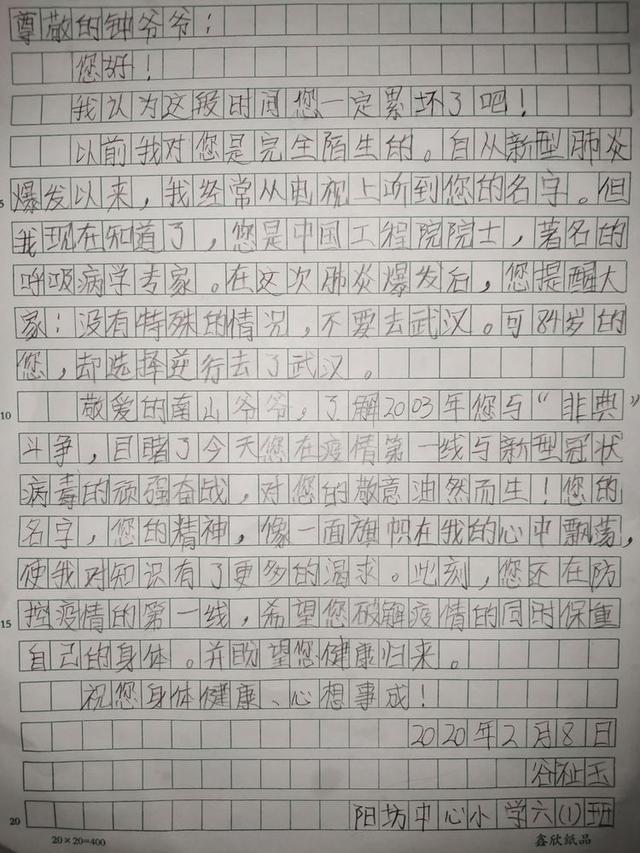 尊敬的钟爷爷：
您好！
我认为这段时间您一定累坏了吧！
以前我对您是完全陌生的。自从新型肺炎
5
爆发以来，我经常从电视上听到您的名字。但
我现在知道了，您是中国工程院院士，著名的
呼吸病学专家。在这次肺炎爆发后，您提醒大
家：没有特殊的情况，不要去武汉。可84岁的
您，却选择逆行去了武汉。
10
敬爱的南山爷爷，了解2003年您与“非典”
斗争，目睹了今天您在疫情第一线与新型冠状
病毒的顽强奋战，对您的敬意油然而生！您的
名字，您的精神，像一面旗帜在我的心中飘荡，
使我对知识有了更多的渴求。此刻，您还在防
15
控疫情的第一线，希望您破解疫情的同时保重
自己的身体。并盼望您健康归来。
祝您身体健康、心想事成！
2020年2月8日
谷祉玉
20
阳坊中心小学六(1)班
20×20=400
鑫欣纸品